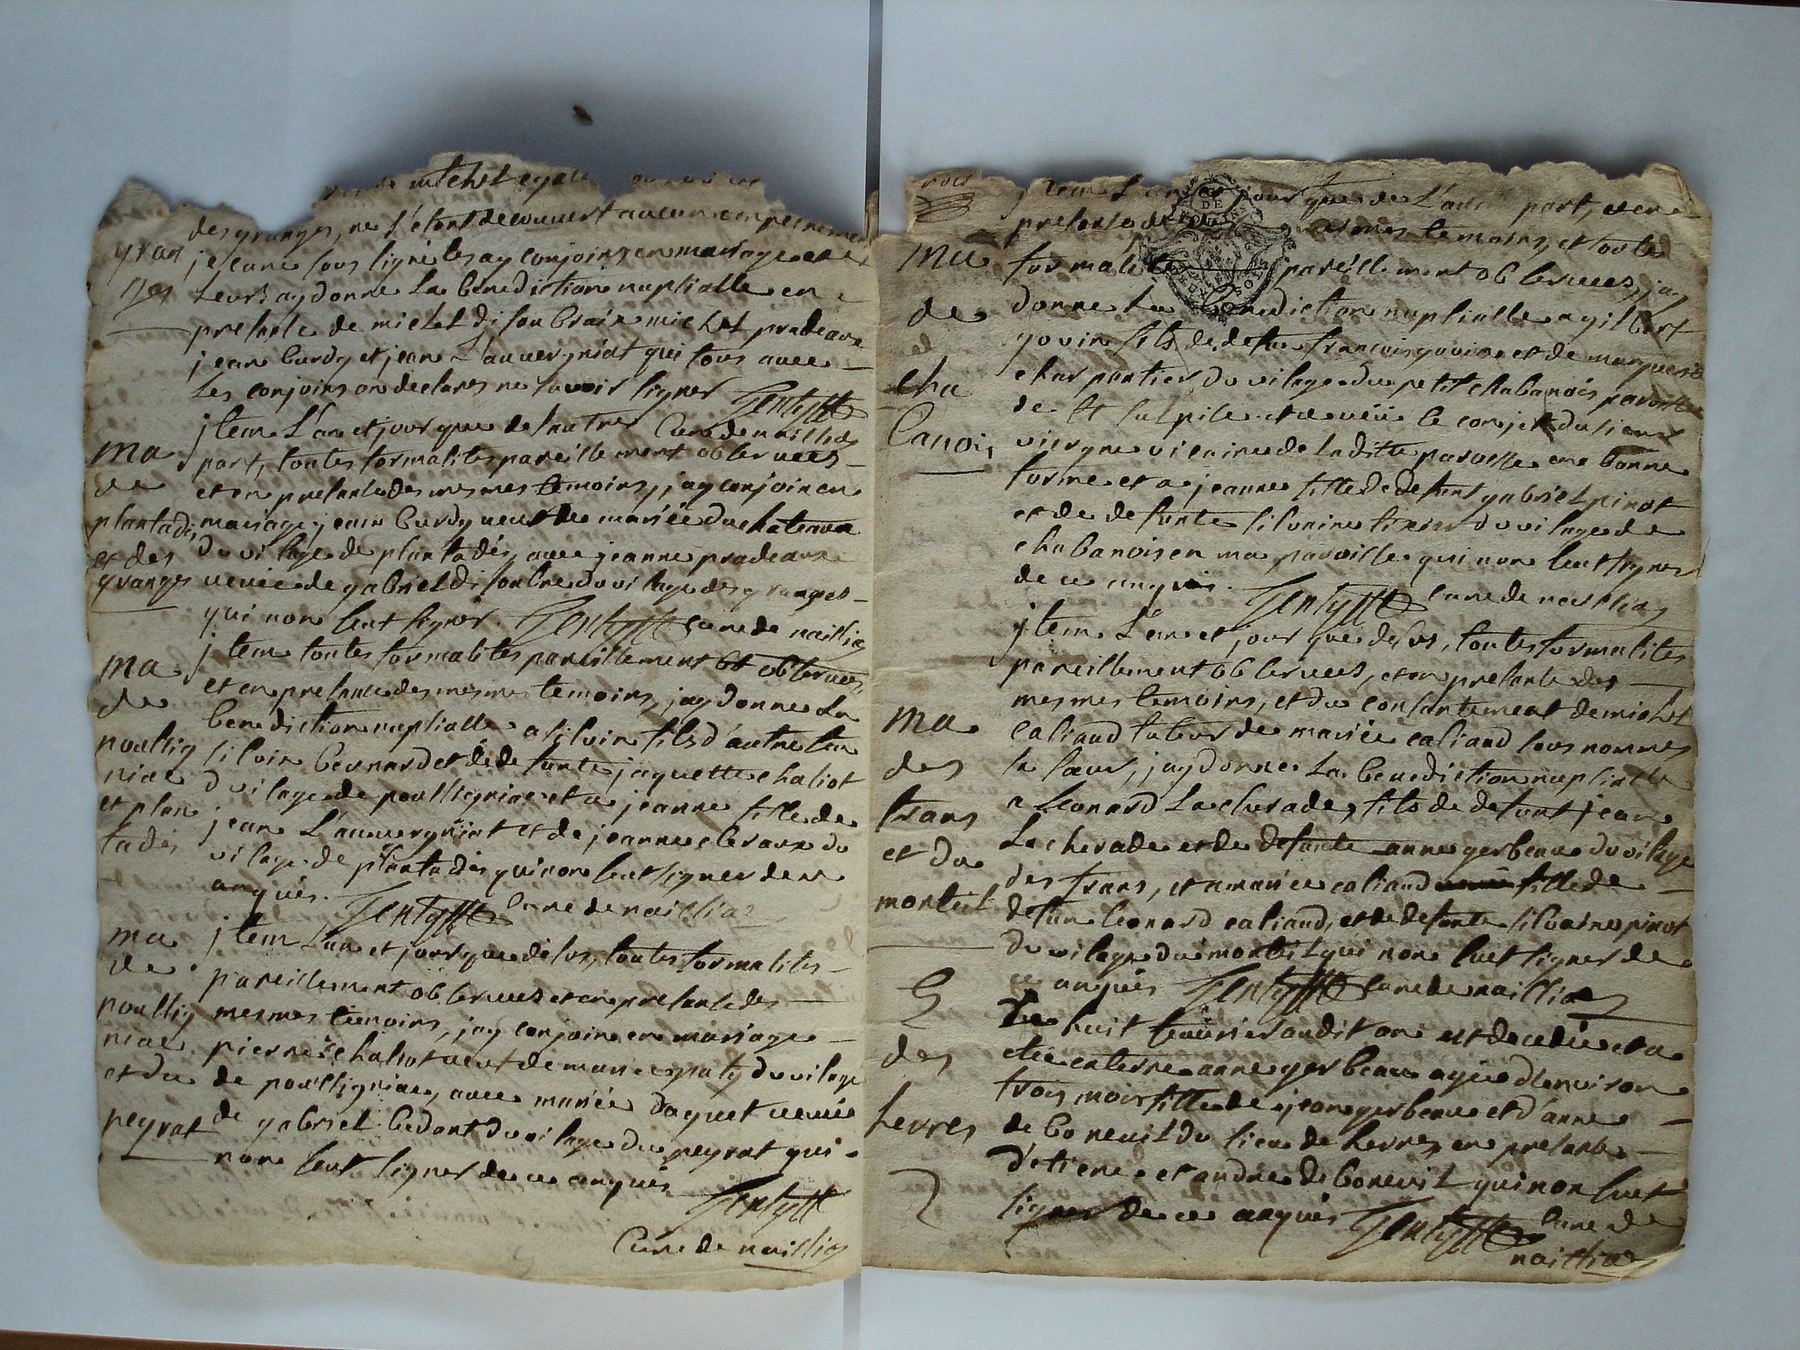 michel
des granges, ne s'étant decouvert aucun empechemen
gran
ges
je cure sous signé les ay conjoins en mariage et
leurs ay donne la benediction nuptialle en
presante de michel disoubraix michel pradeaux
jean burdy et jean l'auvergniat qui tous avec
les conjoins on declares ne savoir signer
curé de naillias
ma
de
plantadis
et des
granges
jtem l'an et jour que de l'autre
part, toutes formalites pareillement observees
et en presante des mesmes temoins, j'ay conjoin en
mariage jean burdy veuf de mariée duchateaux
du vilage de plantadis, avec jeanne pradeaux
veuve de gabriel disoubre du vilage des granges
qui non seut signer. curé de naillias
ma
de
poullig
niac
et plan
tadis
jtem toutes formalites pareillement observees
et en presante des mesmes temoins, jay donne la
benediction nuptialle a silvin fils d'autre
silvin bernard et de defunte jaquette chaliot
du vilage de poulligniac et a jeanne fille de
jean l'auvergniat et de jeanne du
vilage de plantadis qui non seut signer de ce
anquis. curé de naillias
ma
de
poullig
niac
et du
peyrat
jtem l'an et jour que desus, toutes formalites
pareillement observees et en presante des
mesmes temoins, jay conjoin en mariage
pierre chaliot veuf de marie paty du vilage
de poulligniac, avec mariée daquet veuve
de gabriel bedont du vilage du peyrat qui
non seut signer de ce anquis
Curé de naillias
rois
jtem jour que de l'autre part, et en
presante de mesmes temoins, et toutes
ma
de
cha
banois
formalites pareillement observees, jay
donne la benediction nuptialle a gilbert
govin fils de defun françois govin et de marguerite
charpantier du vilage du petit chabanois paroisse
de st sulpise et a veüe le conje du sieur
vicaire de laditte paroisse en bonne
forme et a jeanne fille de defunt gabriel pinot
et de defunte silvaine du vilage de
chabanois en ma paroisse qui non seut signer
de ce anquis. curé de naillias
ma
des
frans
et du
monteil
jtem l'an et jour que desus, toutes formalites
pareillement observees, et en presante des
mesmes temoins, et du consantement de michel
caliaud tuteur de mariée caliaud sous nommes
sa sœur, jay donne la benediction nuptialle
a leonard lacherade, fils de defunt jean
lacherade et de defunte anne gerbeau du vilage
des frans, et a mariée caliaud fille de
defun leonard caliaud, et de defunte silvaine pinot
du vilage du monteil qui non seut signer de
ce anquis curé de naillias
des
herres
Le huit feuvrier audit an est decedée et a
etee enterre anne gerbeau agée d'environ
trois mois fille de jean gerbeau et d'anne
de boneuil du lieu de herres en presante
d'etiene et andre de boneuil qui non seut
signer de ce anquis curé de
naillias